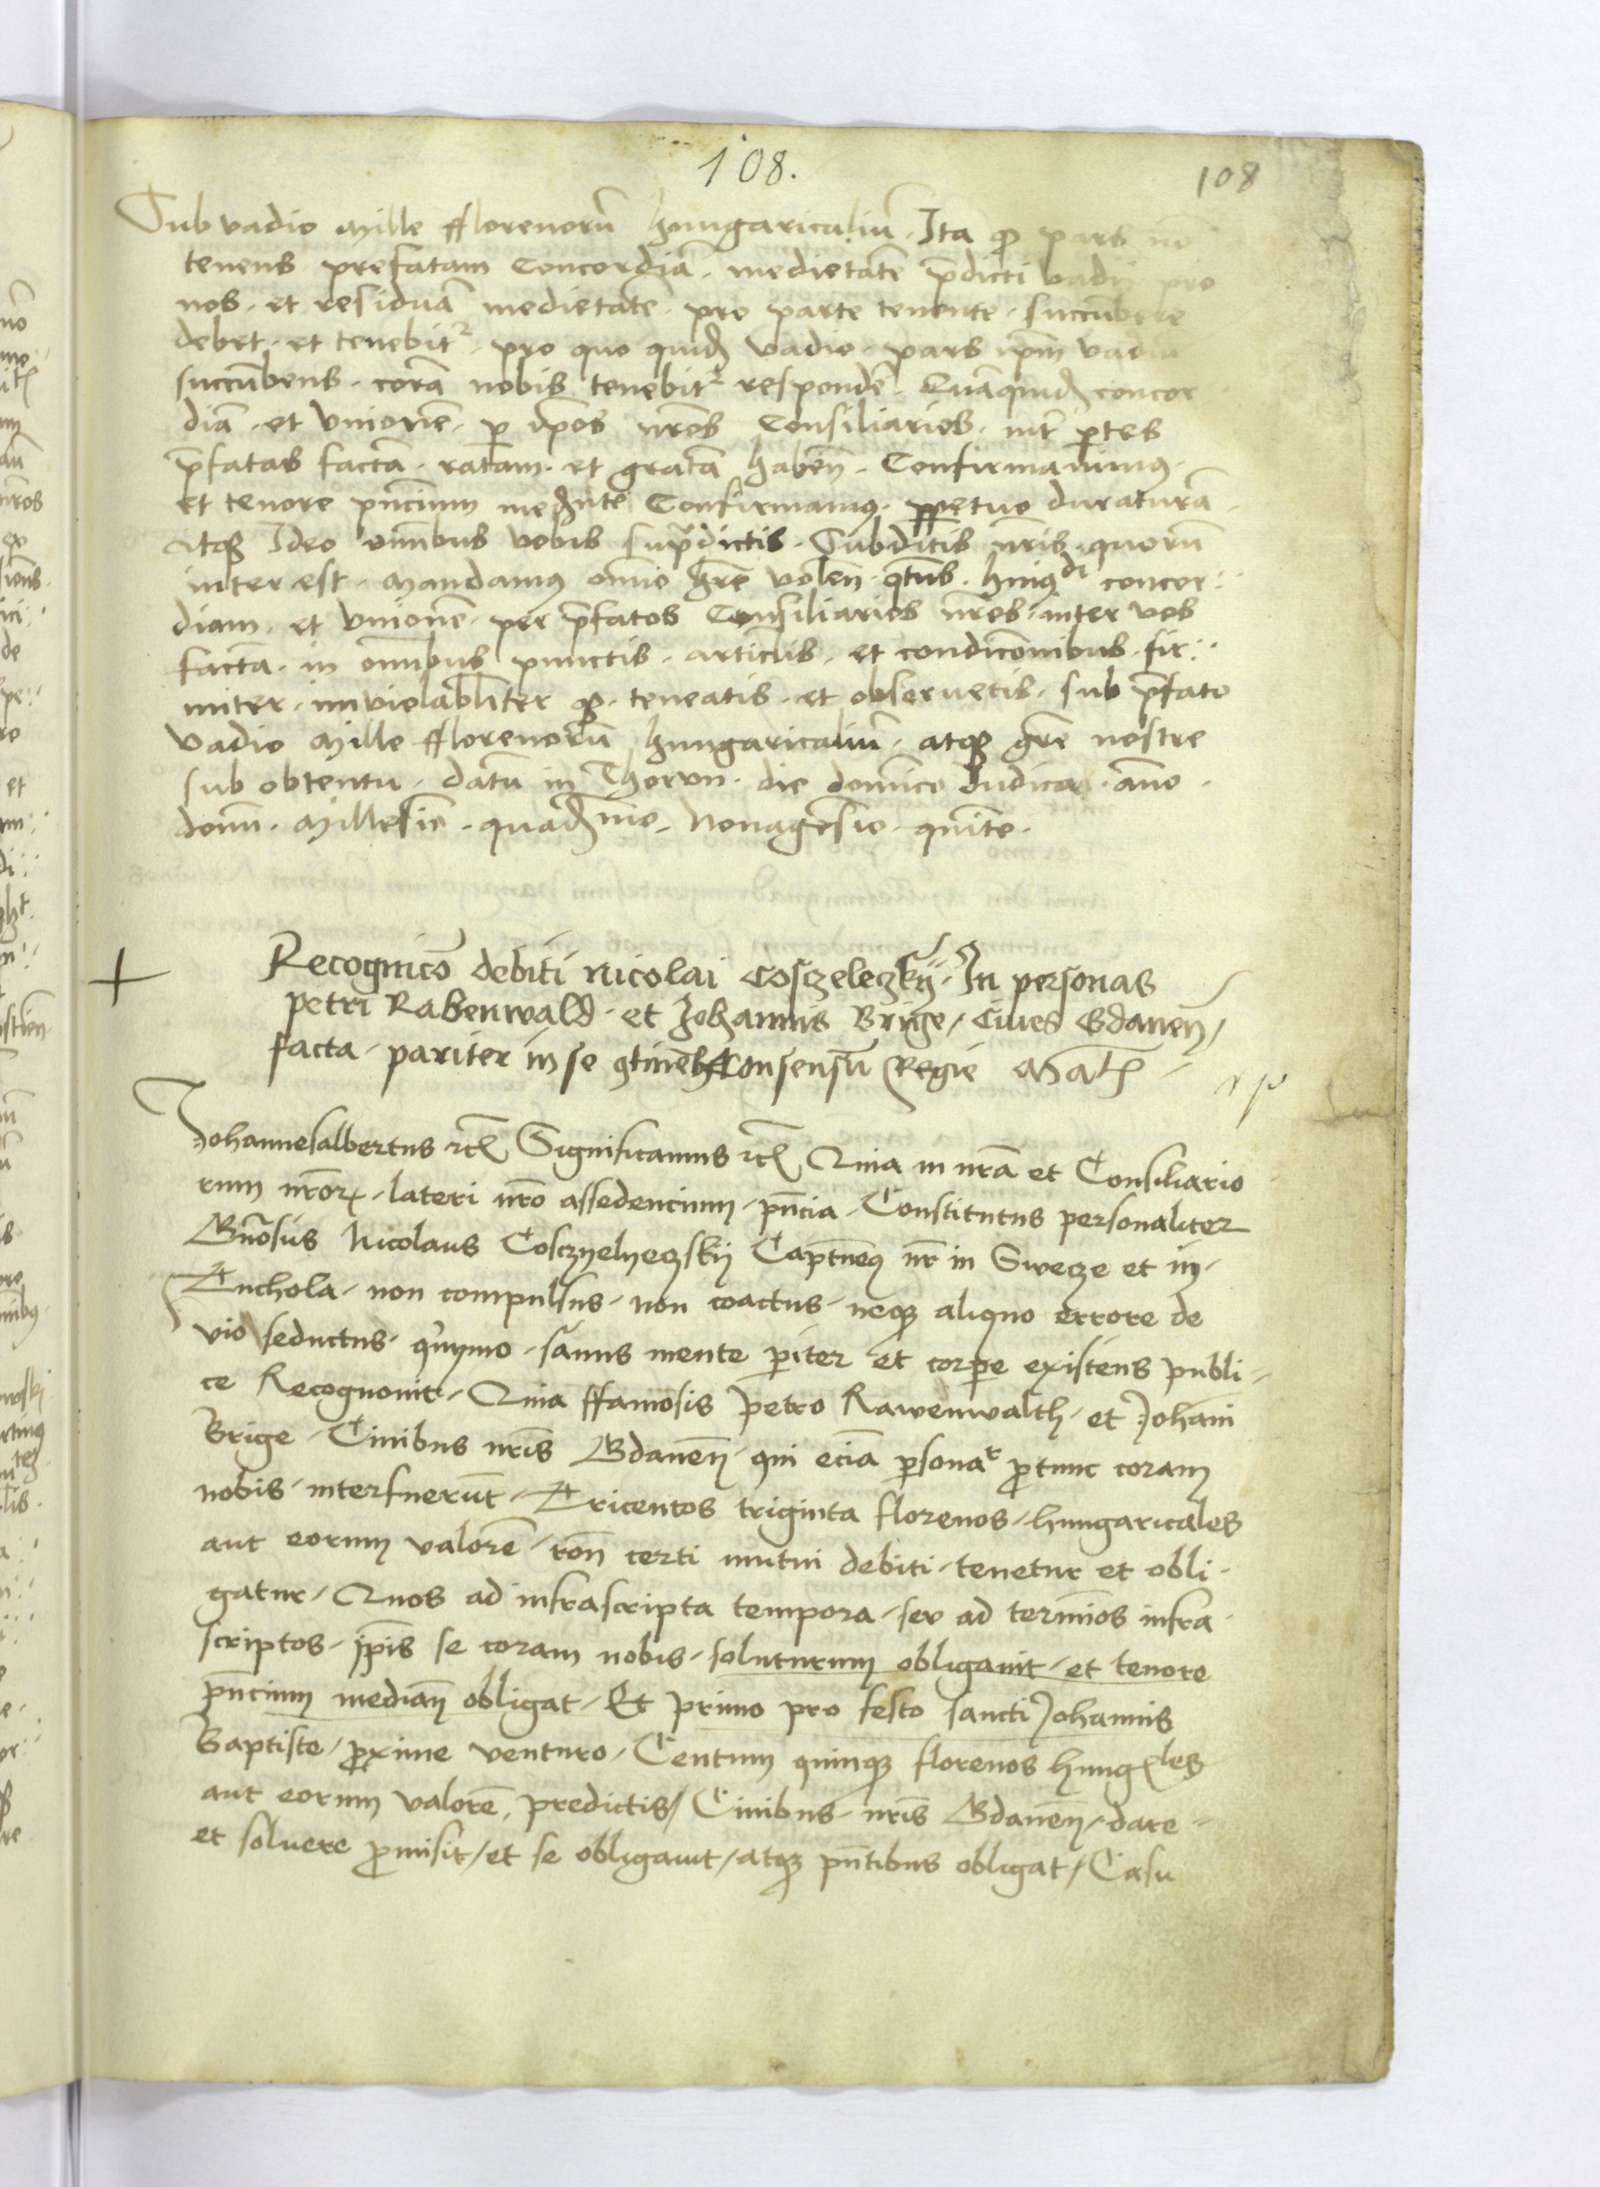 108.
108
Sub vadio Mille fflorenorū hungaricaliū. Ita ꝙ pars no
tenens prefatam Concordiā. medietatē p̄dicti vadij pro
nos. et residuā medietatē. pro parte tenente. succūbere
debet. et tenebit᷑. pro quo quidē vadio. pars ip̄m vadiū
succūbens. corā nobis tenebit᷑ respondē. Quāquidē concor
diā. et vnionē. per ip̄os nr̄os Consiliarios. int̄ ꝑtes
p̄fatas factā. ratam. et gratā habeñ. Confirmauimꝰ.
et tenore pn̄cium medn̄te Confirmamꝰ. ꝑpetuo duraturā.
itaqꝫ Ideo om̄ibus vobis sup̄dictis. Subditis nr̄is. quorū
inter est. Mandamꝰ om̄io gr̄e volen̄. qtn̄ꝰ. huiꝰdi concor:
diam. et vnionē. per p̄fatos Consiliarios nr̄os. inter vos
factā. in om̄ibus punctis. articlis. et condicōnibus. fir:
miter. inviolabl̄iter qꝫ. teneatis. et obseruetis. sub p̄fato
vadio Mille fflorenorū hungaricaliū. atqꝫ gr̄e nostre
sub obtentu. datū in Thorvn. die domīco Iudica. anno.
domī. Millesīo. quadmo. Nonagesīo. quīto.
Recognicō debiti nicolai Cosczeleczky. In personas
petri Rabenwald. et Johannis Brige / Ciues Gdaneñ /
facta. pariter in se 9tineñs Consensū Regie Matꝭ
Johannesalbertus ꝛcꝭ Significamus ꝛcꝭ Quia in nr̄a et Consiliario
rum nr̄orꝝ. lateri nr̄o assedencium. pn̄cia. Constitutus personaliter
Gn̄osus Nicolaus Cosczyelyeczskij Captn̄eꝰ nr̄ in Swecze et in.
Tuchola. non compulsus. non coactus. neqꝫ aliquo errore de
vio seductus. qūymo. sanus mente ꝑiter et corꝑe existens publi-
ce Recognouit. Quia ffamosis Petro Rawenwalth. et Johāni
Brige. Ciuibus nr̄is Gdaneñ. qui eciā ꝑsonar ꝓtunc coram
nobis. interfuerūt. Tricentos triginta florenos. hungaricales
aut eorum valorē. roñ certi mutui debiti. tenetur et obli-
gatur. Quos ad infrascripta tempora. seu ad termīos infra-
scriptos. ip̄is se coram nobis. soluturum obligauit. et tenore
pn̄cium median̄ obligat. Et primo pro festo sancti Johannis
Baptiste. ꝓxime venturo. Centum quinqꝫ florenos hungꝭles
aut eorum valorē. predictis / Ciuibus. nr̄is Gdaneñ. dare-
et soluere ꝓmisit / et se obligauit / atqꝫ pn̄tibus obligat / Casu